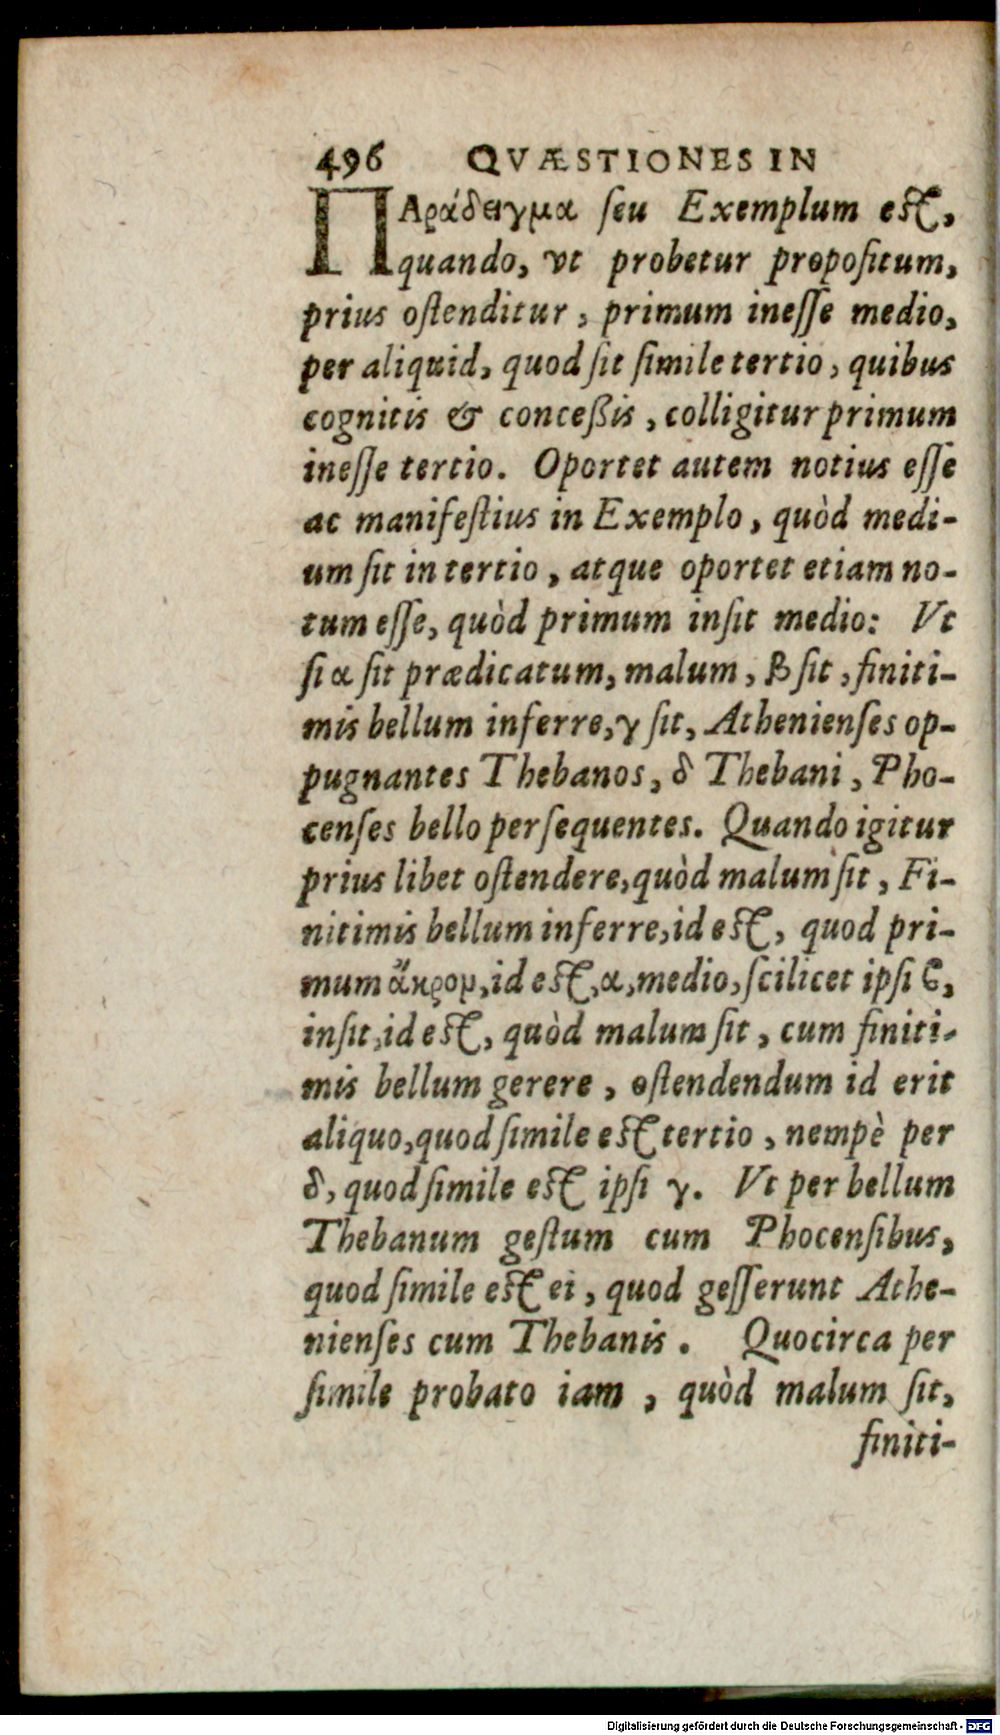 496 QVÆSTIONES IN
ΠΑράδειγμα ſeu Exemplum eſt,
quando, vt probetur propoſitum,
prius oſtenditur, primum ineſſe medio,
per aliquid, quod ſit ſimile tertio, quibus
cognitis & conceßis, colligitur primum
ineſſe tertio. Oportet autem notius eſſe
ac manifeſtius in Exemplo, quòd medi-
um ſit in tertio, atque oportet etiam no-
tum eſſe, quòd primum inſit medio: Vt
ſi α ſit prædicatum, malum, β ſit, finiti-
mis bellum inferre, γ ſit, Athenienſes op-
pugnantes Thebanos, δ Thebani, Pho-
cenſes bello perſequentes. Quando igitur
prius libet oſtendere, quòd malum ſit, Fi-
nitimis bellum inferre, id eſt, quod pri-
mum ἄκρον, id eſt, α, medio, ſcilicet ipſi ϐ,
inſit, id eſt, quòd malum ſit, cum finiti-
mis bellum gerere, oſtendendum id erit
aliquo, quod ſimile eſt tertio, nempè per
δ, quod ſimile eſt ipſi γ. Vt per bellum
Thebanum geſtum cum Phocenſibus,
quod ſimile eſt ei, quod geſſerunt Athe-
nienſes cum Thebanis. Quocirca per
ſimile probato iam, quòd malum ſit,
finiti-
Digitalisierung gefördert durch die Deutsche Forschungsgemeinschaft - DFG